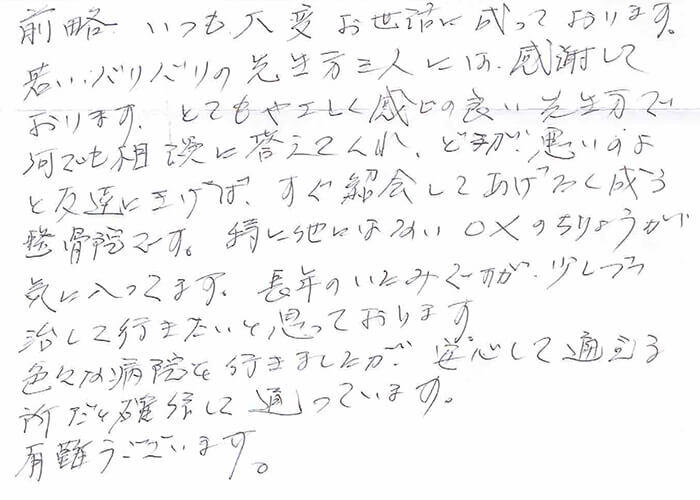 前略 いつも大変お世話に成っております。
若いバリバリの先生方三人には、感謝して
おります。とてもやさしく感じの良い先生方で
何でも相談に答えてくれ、どこが悪いのよ
と友達に言げば、すぐ紹介してあげたく成る
整骨院です。特に他にはない○×のちりょうが
気に入ってます。長年のいたみですが、少しづつ
治して行きたいと思っております
色々な病院を行きましたが、安心して通える
所だと確信して通っています。
有難うございます。